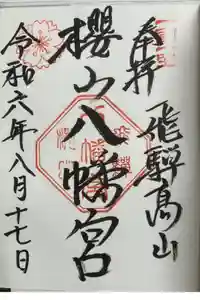 奉拝
飛騨高山
櫻山八幡宮
令和六年八月十七日